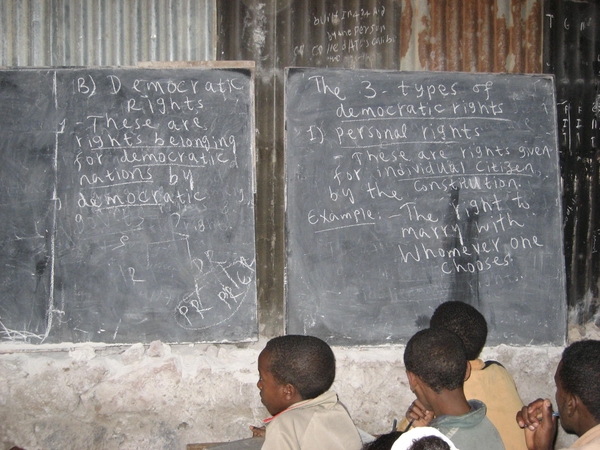 built in 424 A.D
by the person
B) Democratic
Rights
- These are
rights belonging
for democratic
nations by
democratic
The 3-types of
democratic rights
1) personal rights
- These are rights given
for individual Citizen,
by the Constitution.
Example: - The right to
marry with
Whomever one
chooses.